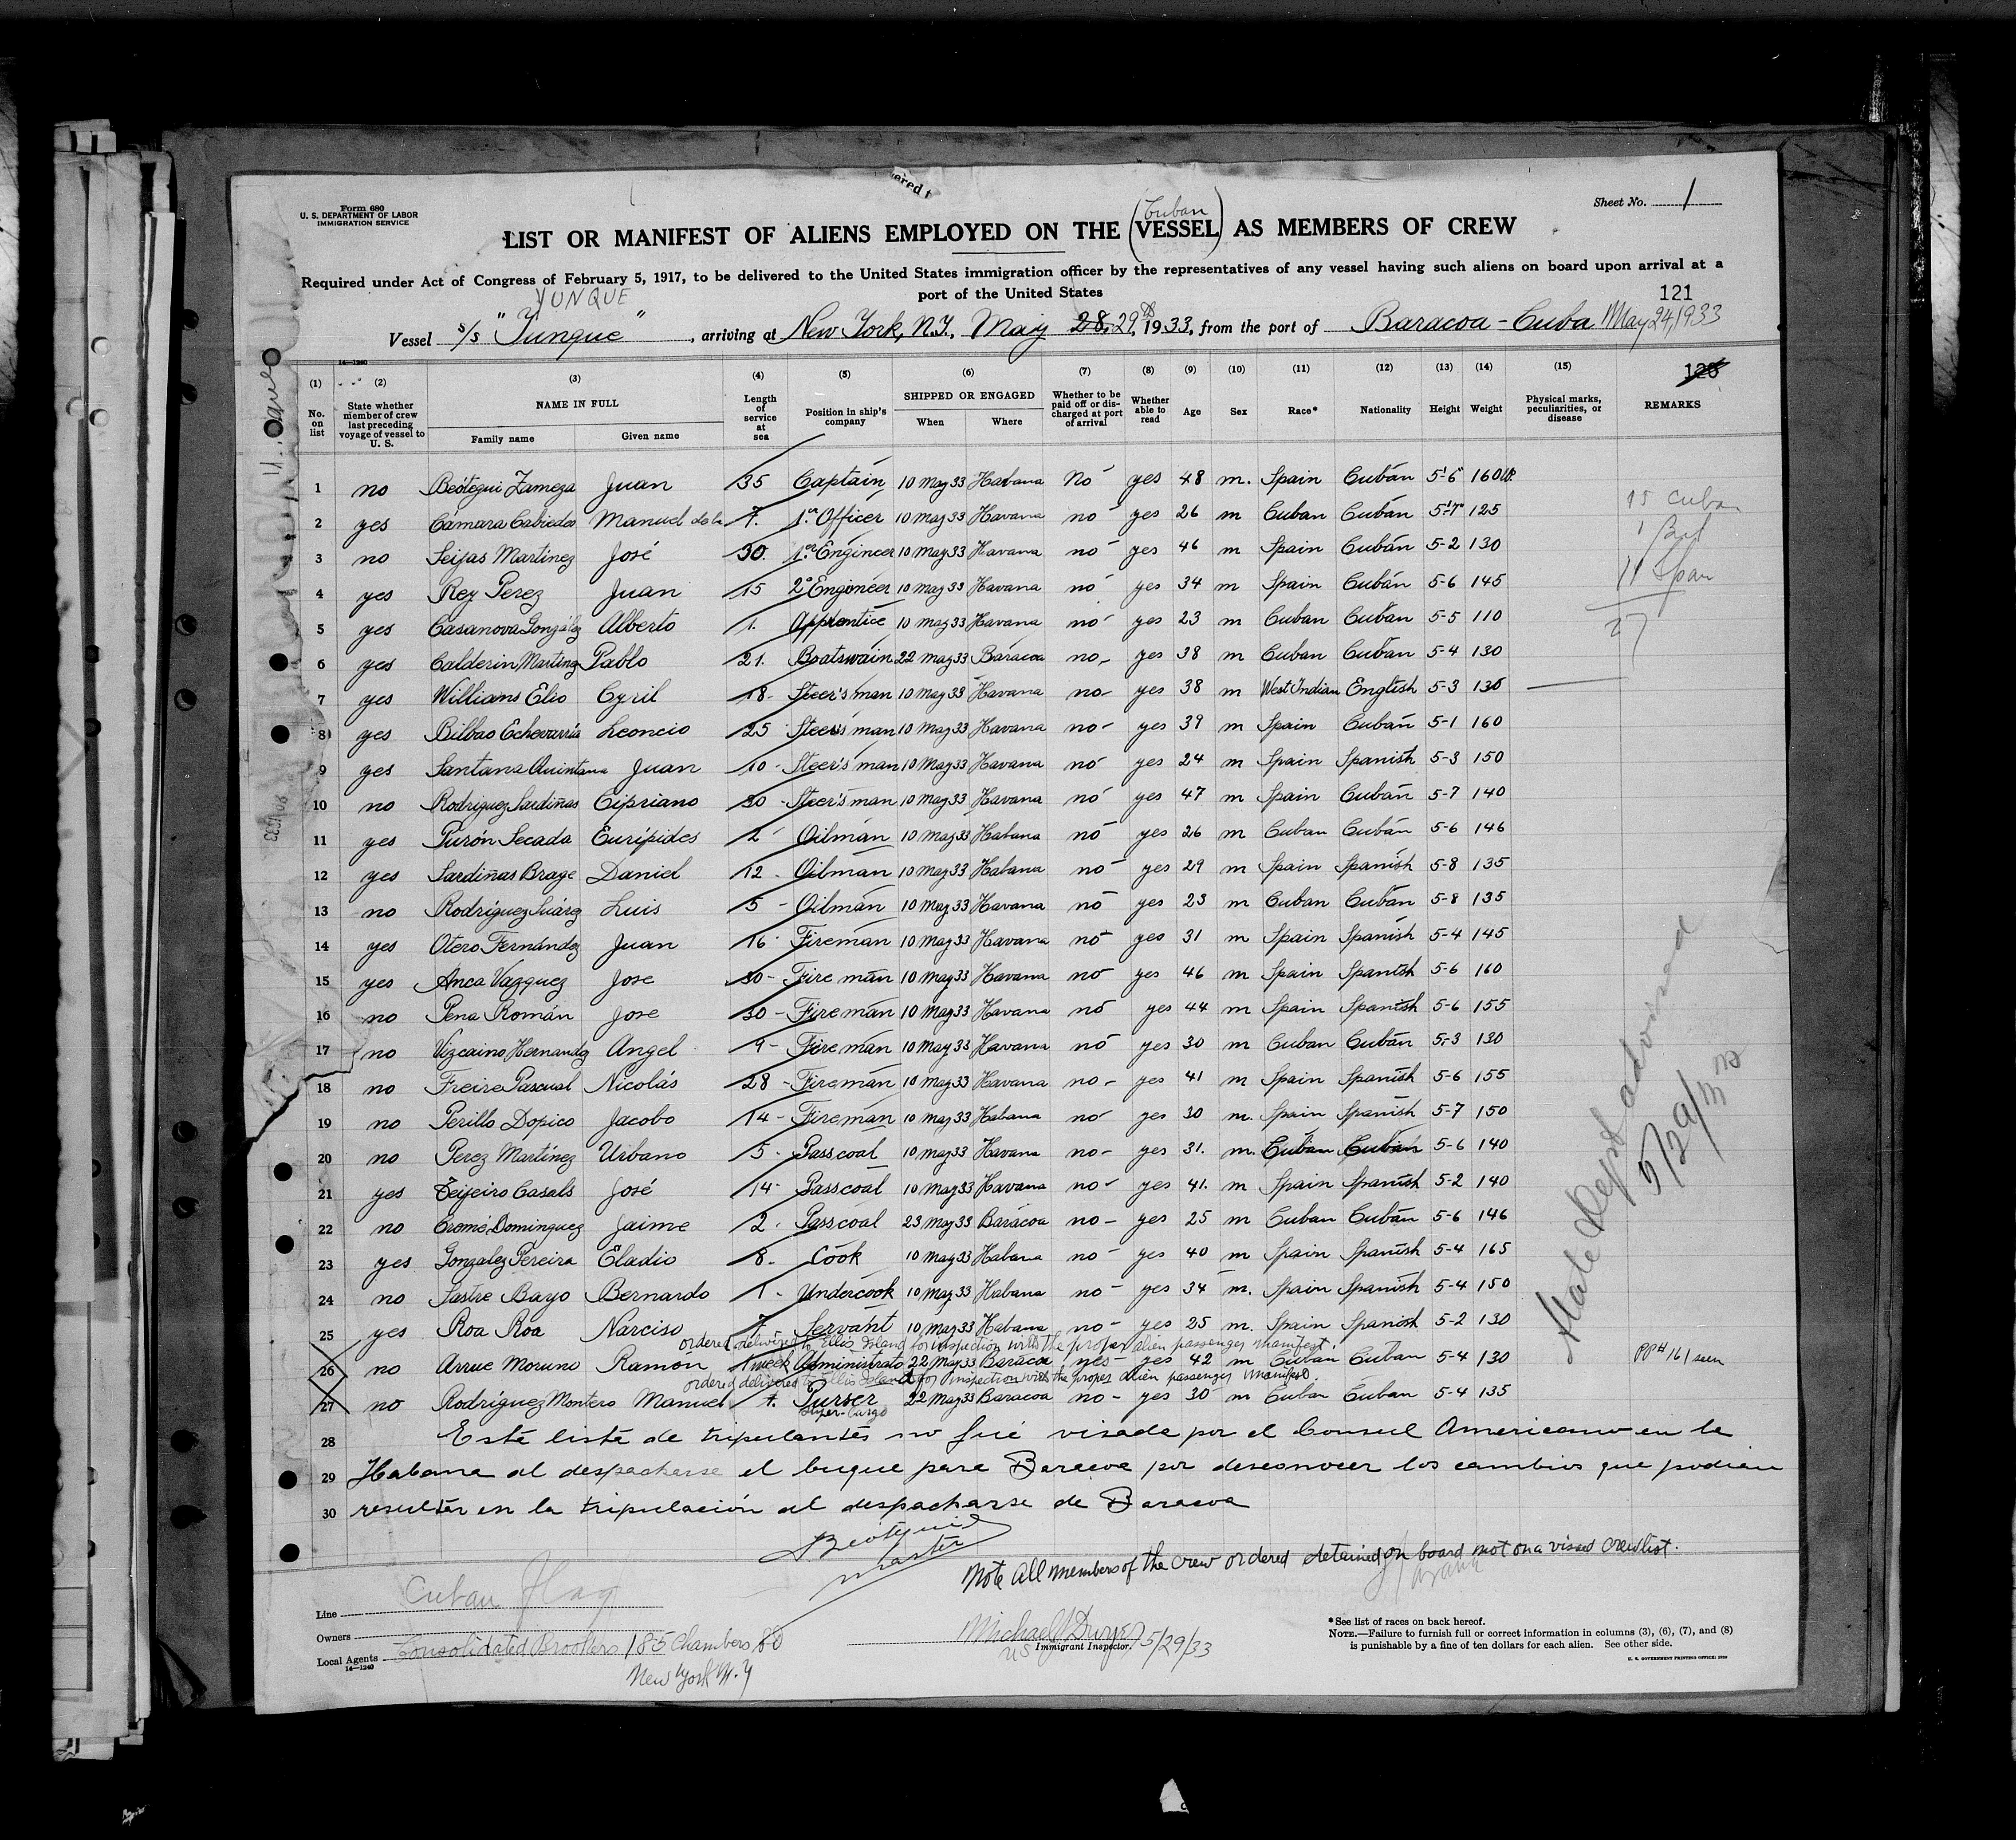 Form 680
U. S. DEPARTMENT OF LABOR
IMMIGRATION SERVICE
Sheet No. 1
Cuban
LIST OR MANIFEST OF ALIENS EMPLOYED ON THE (VESSEL) AS MEMBERS OF CREW
Required under Act of Congress of February 5, 1917, to be delivered to the United States immigration officer by the representatives of any vessel having such aliens on board upon arrival at a
port of the United States
121
YUNQUE
Vessel s/s "Yunque", arriving at New York, N.Y. May 28, 29, 1933, from the port of Baracoa - Cuba May 24, 1933
14—1240
(1) (2) (3) (4) (5) (6) (7) (8) (9) (10) (11) (12) (13) (14) (15) 126
No. on list State whether member of crew last preceding voyage of vessel to U. S. NAME IN FULL Family name Given name Length of service at sea Position in ship's company SHIPPED OR ENGAGED When Where Whether to be paid off or discharged at port of arrival Whether able to read Age Sex Race* Nationality Height Weight Physical marks, peculiarities, or disease REMARKS
1 no Beótegui Zameza Juan 35 Captain 10 May 33 Habana No yes 48 m. Spain Cubán 5'-6" 160 lb.
2 yes Cámara Cabiedes Manuel de la 7. 1er Officer 10 May 33 Havana no yes 26 m Cuban Cubán 5'-7" 125
15 Cuba
3 no Seijas Martinez José 30. 1er Engineer 10 May 33 Havana no yes 46 m Spain Cubán 5-2 130
4 yes Rey Perez Juan 15 2º Engineer 10 May 33 Havana no yes 34 m Spain Cubán 5-6 145
11 Span
5 yes Casanova González Alberto 1. Apprentice 10 May 33 Havana no yes 23 m Cuban Cuban 5-5 110
27
6 yes Calderin Martinez Pablo 21. Boatswain 22 May 33 Baracoa no yes 38 m Cuban Cuban 5-4 130
7 yes Williams Elio Cyril 18 - Steer's man 10 May 33 Havana no yes 38 m West Indian English 5-3 136
8 yes Bilbao Echevarría Leoncio 25 Steer's man 10 May 33 Havana no - yes 39 m Spain Cubán 5-1 160
9 yes Santana Quintana Juan 10 - Steer's man 10 May 33 Havana no yes 24 m Spain Spanish 5-3 150
10 no Rodriguez Sardiñas Cipriano 30 - Steer's man 10 May 33 Havana no yes 47 m Spain Cubán 5-7 140
11 yes Purón Secada Eurípides 2 Oilman 10 May 33 Habana no yes 26 m Cuban Cubán 5-6 146
12 yes Sardiñas Brage Daniel 12 - Oilman 10 May 33 Habana no yes 29 m Spain Spanish 5-8 135
13 no Rodríguez Suárez Luis 5 - Oilman 10 May 33 Havana no yes 23 m Cuban Cubán 5-8 135
14 yes Otero Fernández Juan 16 Fireman 10 May 33 Havana no yes 31 m Spain Spanish 5-4 145
15 yes Anca Vazquez Jose 30 - Fire man 10 May 33 Havana no yes 46 m Spain Spanish 5-6 160
16 no Pena Román Jose 30 - Fire man 10 May 33 Havana no yes 44 m Spain Spanish 5-6 155
17 no Vizcaino Hernandez Angel 9 - Fire man 10 May 33 Havana no yes 30 m Cuban Cubán 5-3 130
18 no Freire Pascual Nicolás 28 - Fireman 10 May 33 Havana no - yes 41 m Spain Spanish 5-6 155
19 no Perillo Dopico Jacobo 14 - Fireman 10 May 33 Habana no yes 30 m. Spain Spanish 5-7 150
20 no Perez Martínez Urbano 5 - Passcoal 10 May 33 Havana no - yes 31. m. Cuban Cuban 5-6 140
21 yes Teijeiro Casals José 14 Passcoal 10 May 33 Havana no - yes 41. m Spain Spanish 5-2 140
22 no Cromé Dominguez Jaime 2. Passcoal 23 May 33 Baracoa no - yes 25 m Cuban Cubán 5-6 146
23 yes Gonzalez Pereira Eladio 8. Cook 10 May 33 Habana no - yes 40 m Spain Spanish 5-4 165
24 no Sastre Bayo Bernardo 1 - Undercook 10 May 33 Habana no - yes 34 m. Spain Spanish 5-4 150
25 yes Roa Roa Narciso 7 Servant 10 May 33 Habana no - yes 25 m. Spain Spanish 5-2 130
ordered delivered to Ellis Island for inspection with the proper alien passenger manifest.
26 no Arrue Moruno Ramon 1 week Administrato 22 May 33 Baracoa yes - yes 42 m Cuban Cuban 5-4 130 PP# 161 seen
ordered delivered to Ellis Island for inspection with the proper alien passenger manifest.
27 no Rodríguez Montero Manuel 7. Purser 22 May 33 Baracoa no - yes 30 m Cuban Cuban 5-4 135
Super-Cargo
State Dept advised
5/29/33
28 Esta lista de tripulantes no fué visada por el Consul Americano en la
29 Habana al despacharse el buque para Baracoa por desconocer los cambios que podian
30 resultar en la tripulación al despacharse de Baracoa
Beótegui
master
Note All members of the crew ordered detained on board not on a visaed crew list.
Cuban Flag
Line
Owners
Local Agents Consolidated Brookers 185 Chambers St
14—1240
New York N.Y
Michael J Dwyer 5/29/33
US Immigrant Inspector.
*See list of races on back hereof.
NOTE.—Failure to furnish full or correct information in columns (3), (6), (7), and (8)
is punishable by a fine of ten dollars for each alien. See other side.
U. S. GOVERNMENT PRINTING OFFICE: